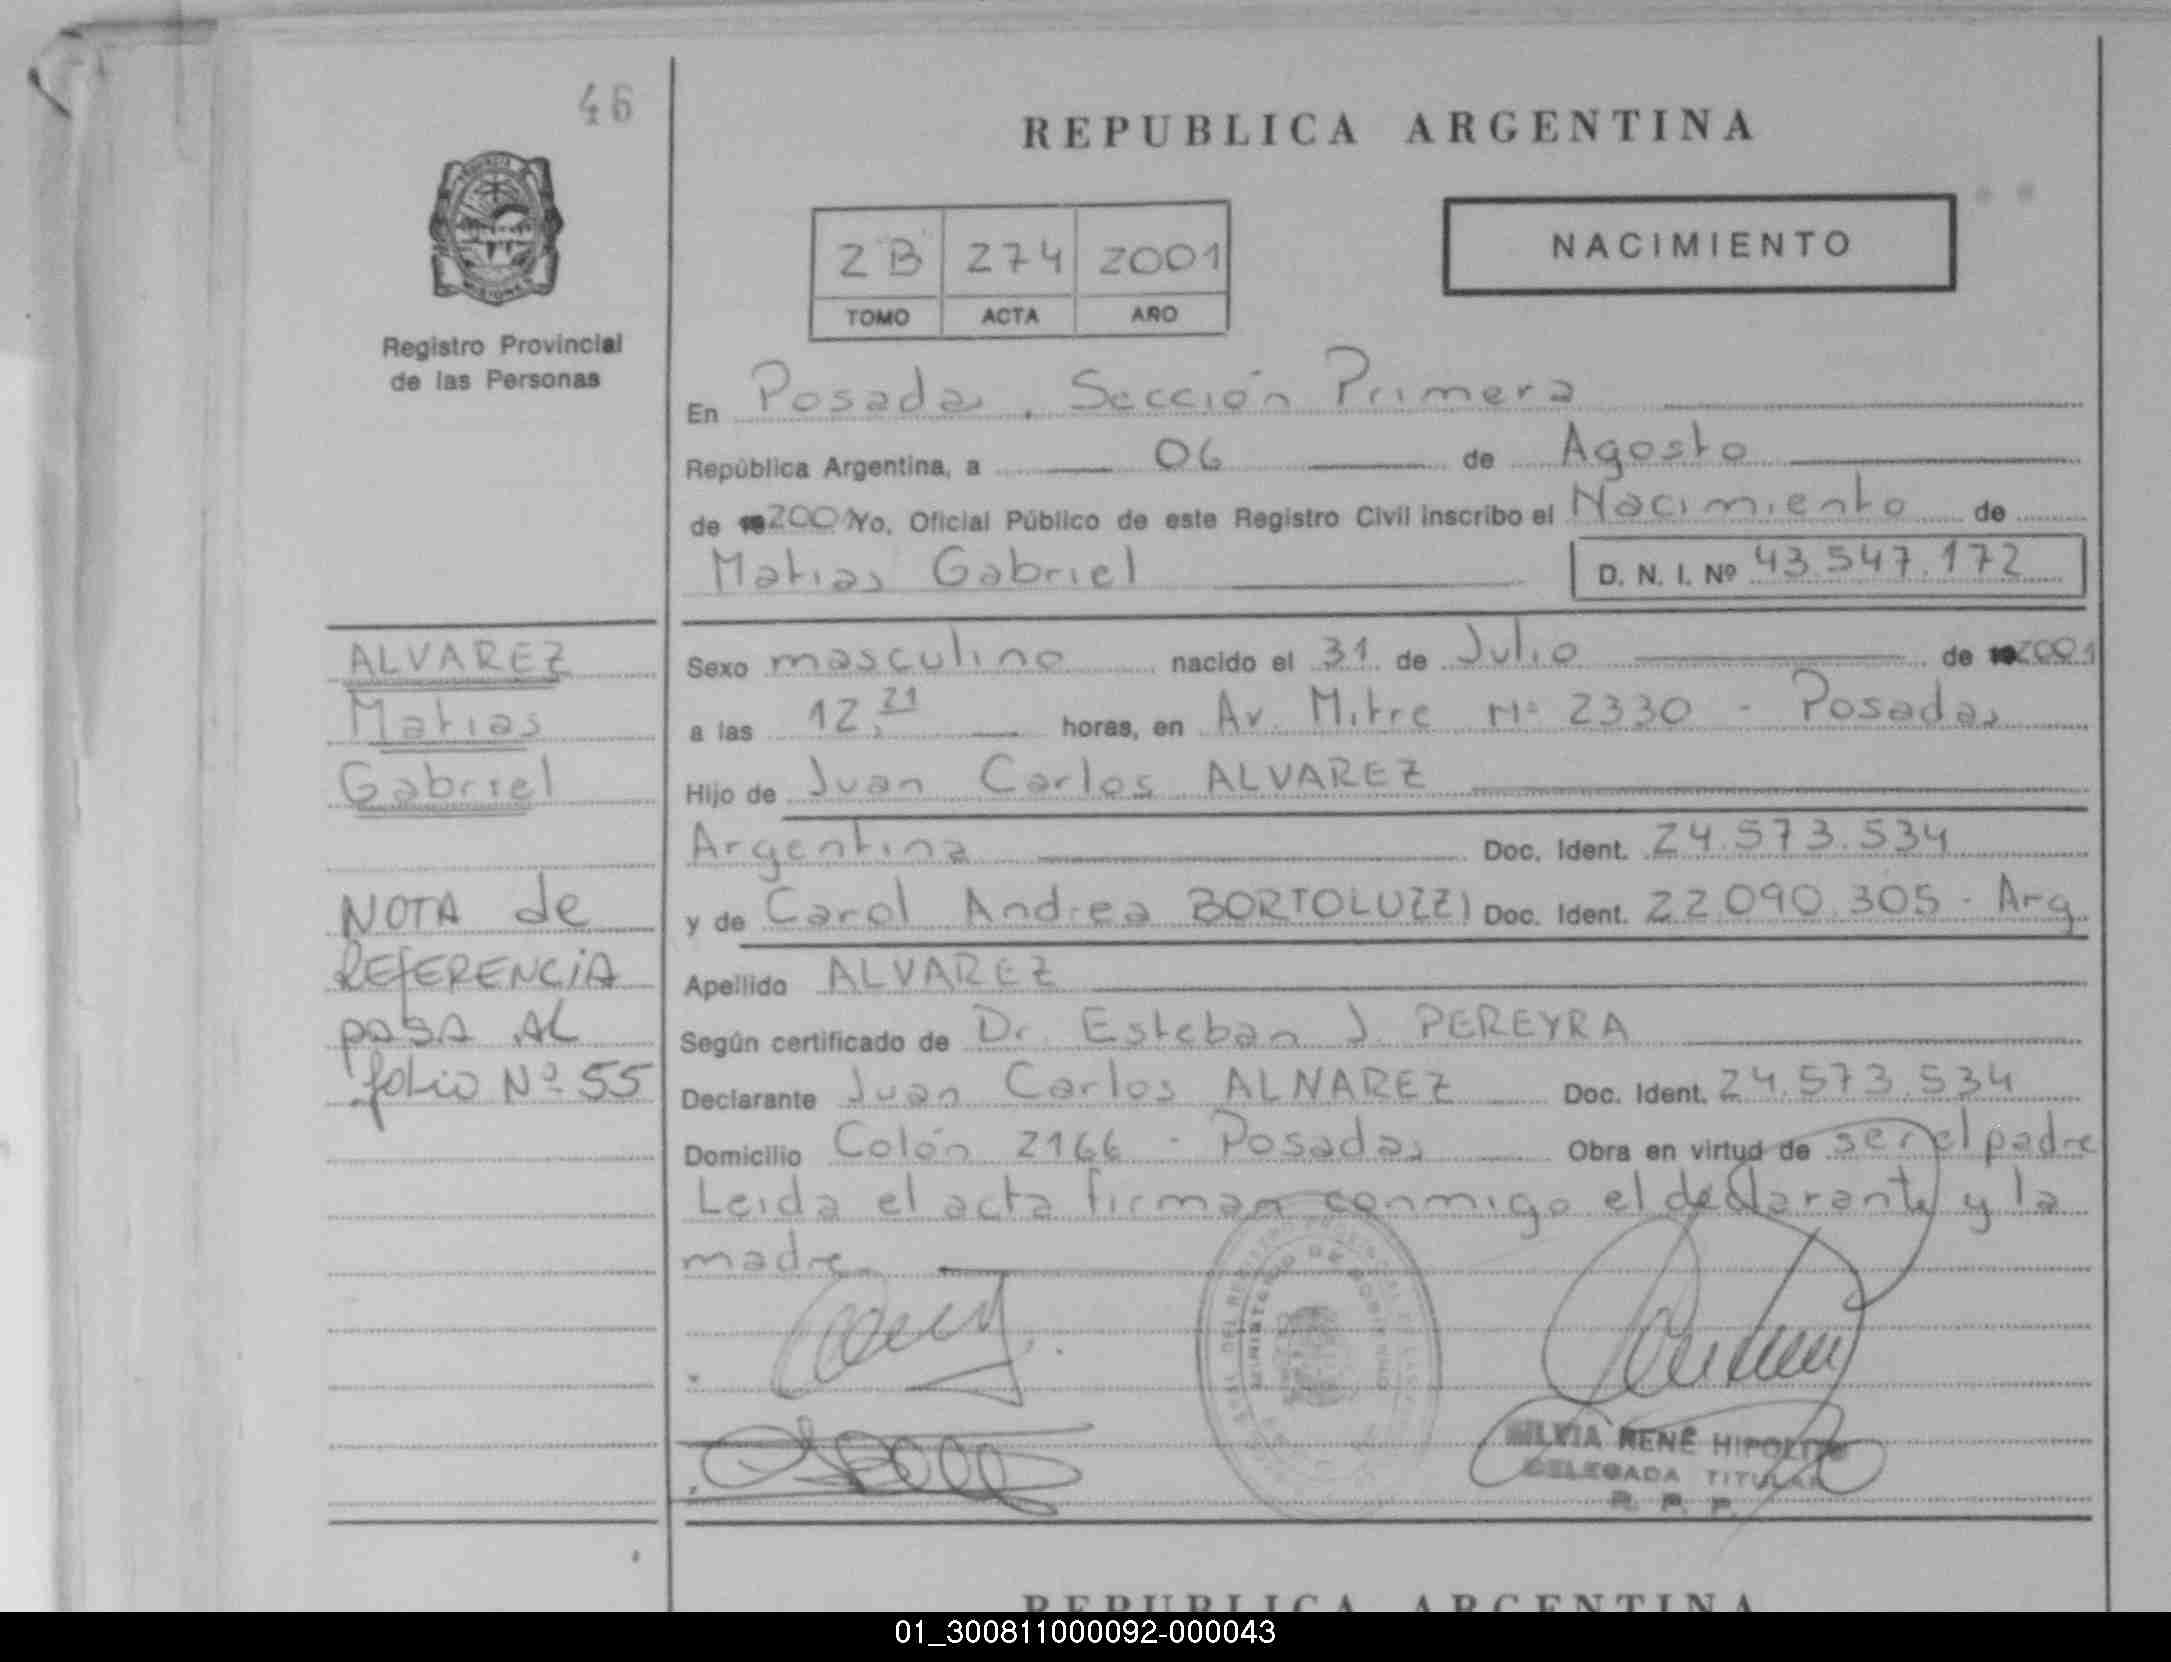 46
REPUBLICA ARGENTINA
2"B" 274 2001
TOMO ACTA AÑO
NACIMIENTO
Registro Provincial
de las Personas
En Posadas, Sección Primera
República Argentina, a 06 de Agosto
de 2001 Yo, Oficial Público de este Registro Civil inscribo el Nacimiento de
Matias Gabriel D. N. I. Nº 43.547.172
ALVAREZ
Matias
Gabriel
NOTA de
REFERENCIA
pasa AL
folio Nº 55
Sexo masculino nacido el 31 de Julio de 2001
a las 12,21 horas, en Av. Mitre Nº 2330 - Posadas
Hijo de Juan Carlos ALVAREZ
Argentina Doc. Ident. 24.573.534
y de Carol Andrea BORTOLUZZI Doc. Ident. 22.090.305 - Arg
Apellido ALVAREZ
Según certificado de Dr. Esteban J. PEREYRA
Declarante Juan Carlos ALNAREZ Doc. Ident. 24.573.534
Domicilio Colón 2166 - Posadas Obra en virtud de ser el padre
Leida el acta firman conmigo el declarante y la
madre.
MINISTERIO DE GOBIERNO
SILVIA RENÉ HIPOLITO
DELEGADA TITULAR
R. P. P.
REPUBLICA ARGENTINA
01_300811000092-000043